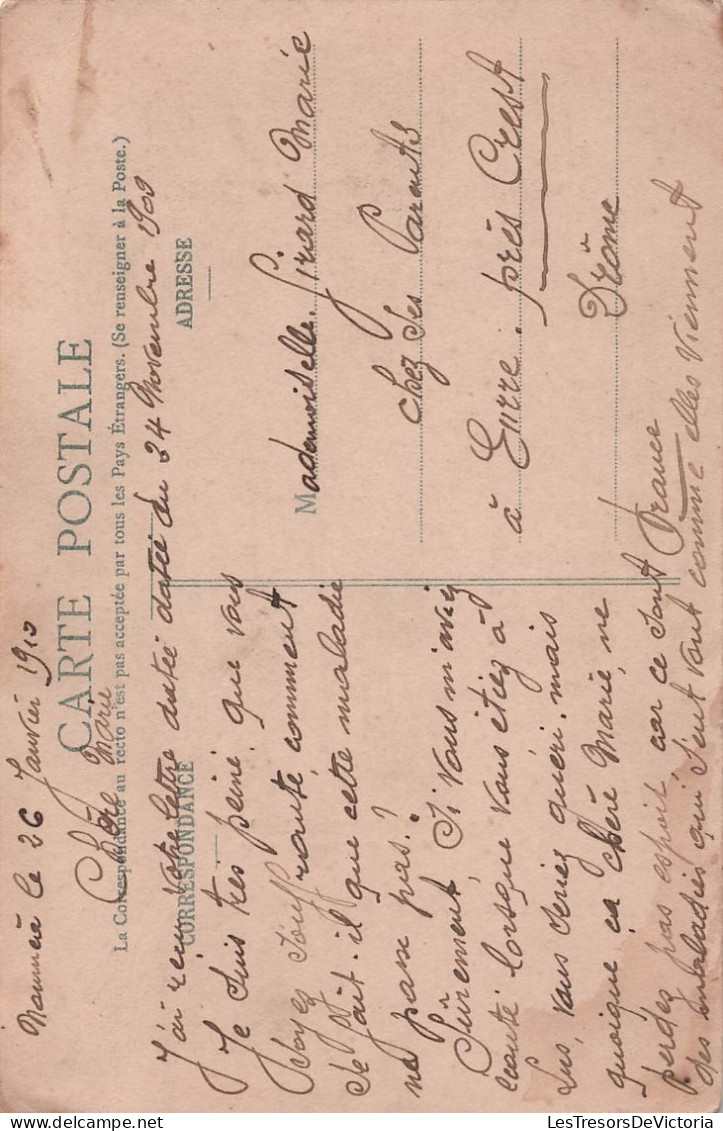 Nouméa le 26 Janvier 1910
CARTE POSTALE
Chère Marie
La Correspondance au recto n'est pas acceptée par tous les Pays Étrangers. (Se renseigner à la Poste.)
CORRESPONDANCE
J'ai reçu votre lettre datée datée du 24 Novembre 1909
Je suis très peiné que vous
soyez souffrante, comment
se fait-il que cette maladie
ne passe pas?
Sûrement, si vous m'aviez
écouté lorsque vous étiez à
vous seriez guéri. mais
quoique ça chère Marie, ne
perdez pas espoir car ce sont
des maladies qui s'en vont comme elles viennent
ADRESSE
Mademoiselle Girard Marie
chez ses Parents
à Eurre. près Crest
Drôme
France
LesTresorsDeVictoria
LesTresorsDeVictoria